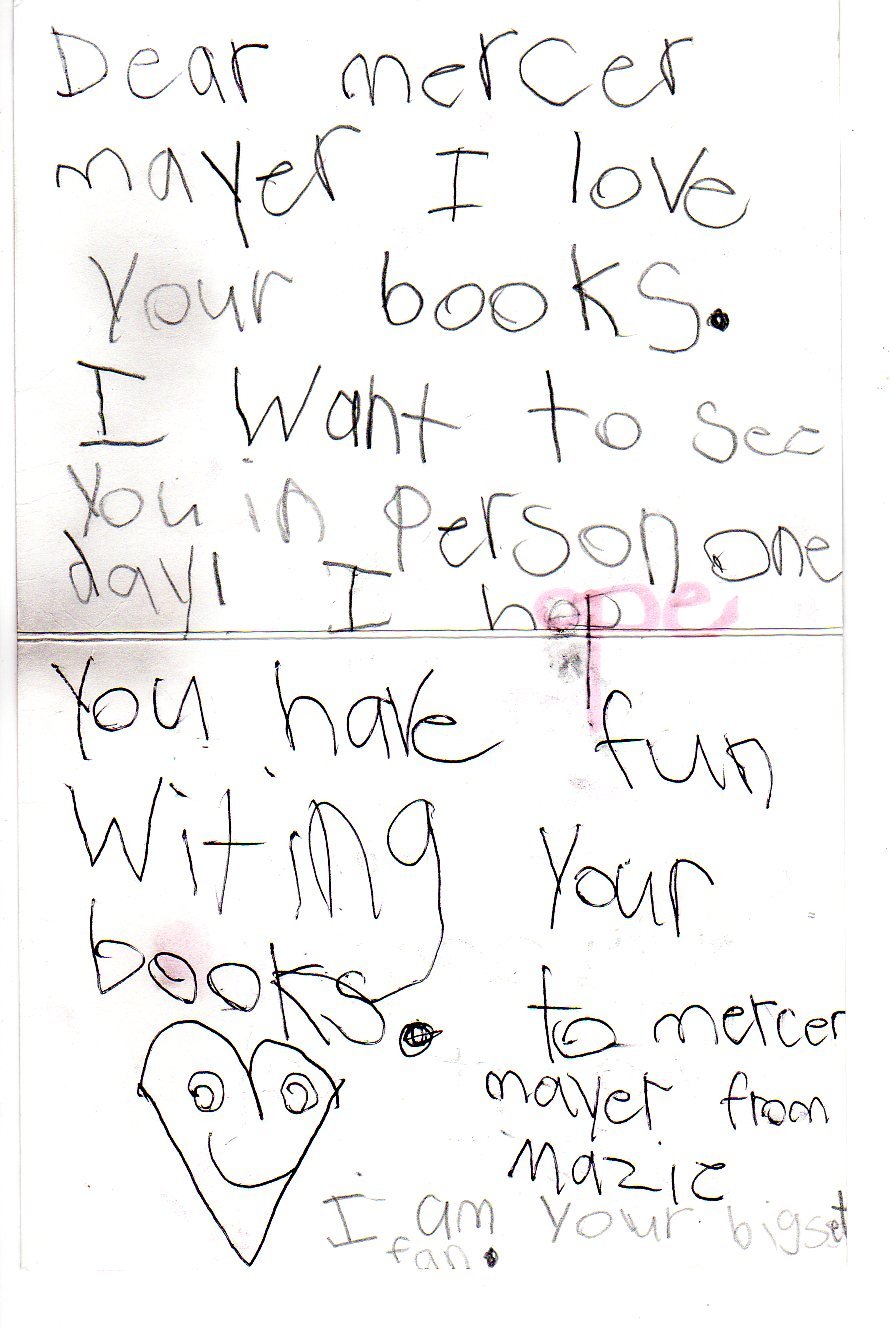 Dear mercer
mayer I love
your books.
I want to see
you in person one
day! I hope
you have fun
Witing your
books.
to mercer
mayer from
mazie
I am your bigset
fan.